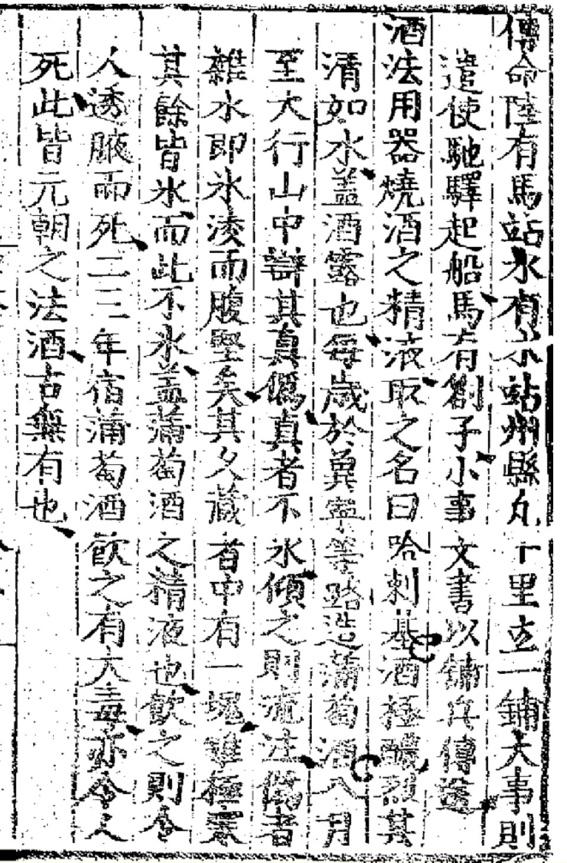 傳命陸有馬站水有水站州縣凡十里立一鋪大事則
遣使馳驛起船馬有劄子小事文書以鋪兵傳送
酒法用器燒酒之精液取之名曰哈剌基酒極醲烈其
清如水盖酒露也每歲於冀寧等路造蒲萄酒八月
至大行山中辯其真僞真者不氷傾之則流注僞者
雜水即氷淩而腹堅矣其久藏者中有一塊雖極寒
其餘皆氷而此不氷盖蒲萄酒之精液也飲之則令
人透腋而死二三年宿蒲萄酒飲之有大毒亦令人
死此皆元朝之法酒古無有也